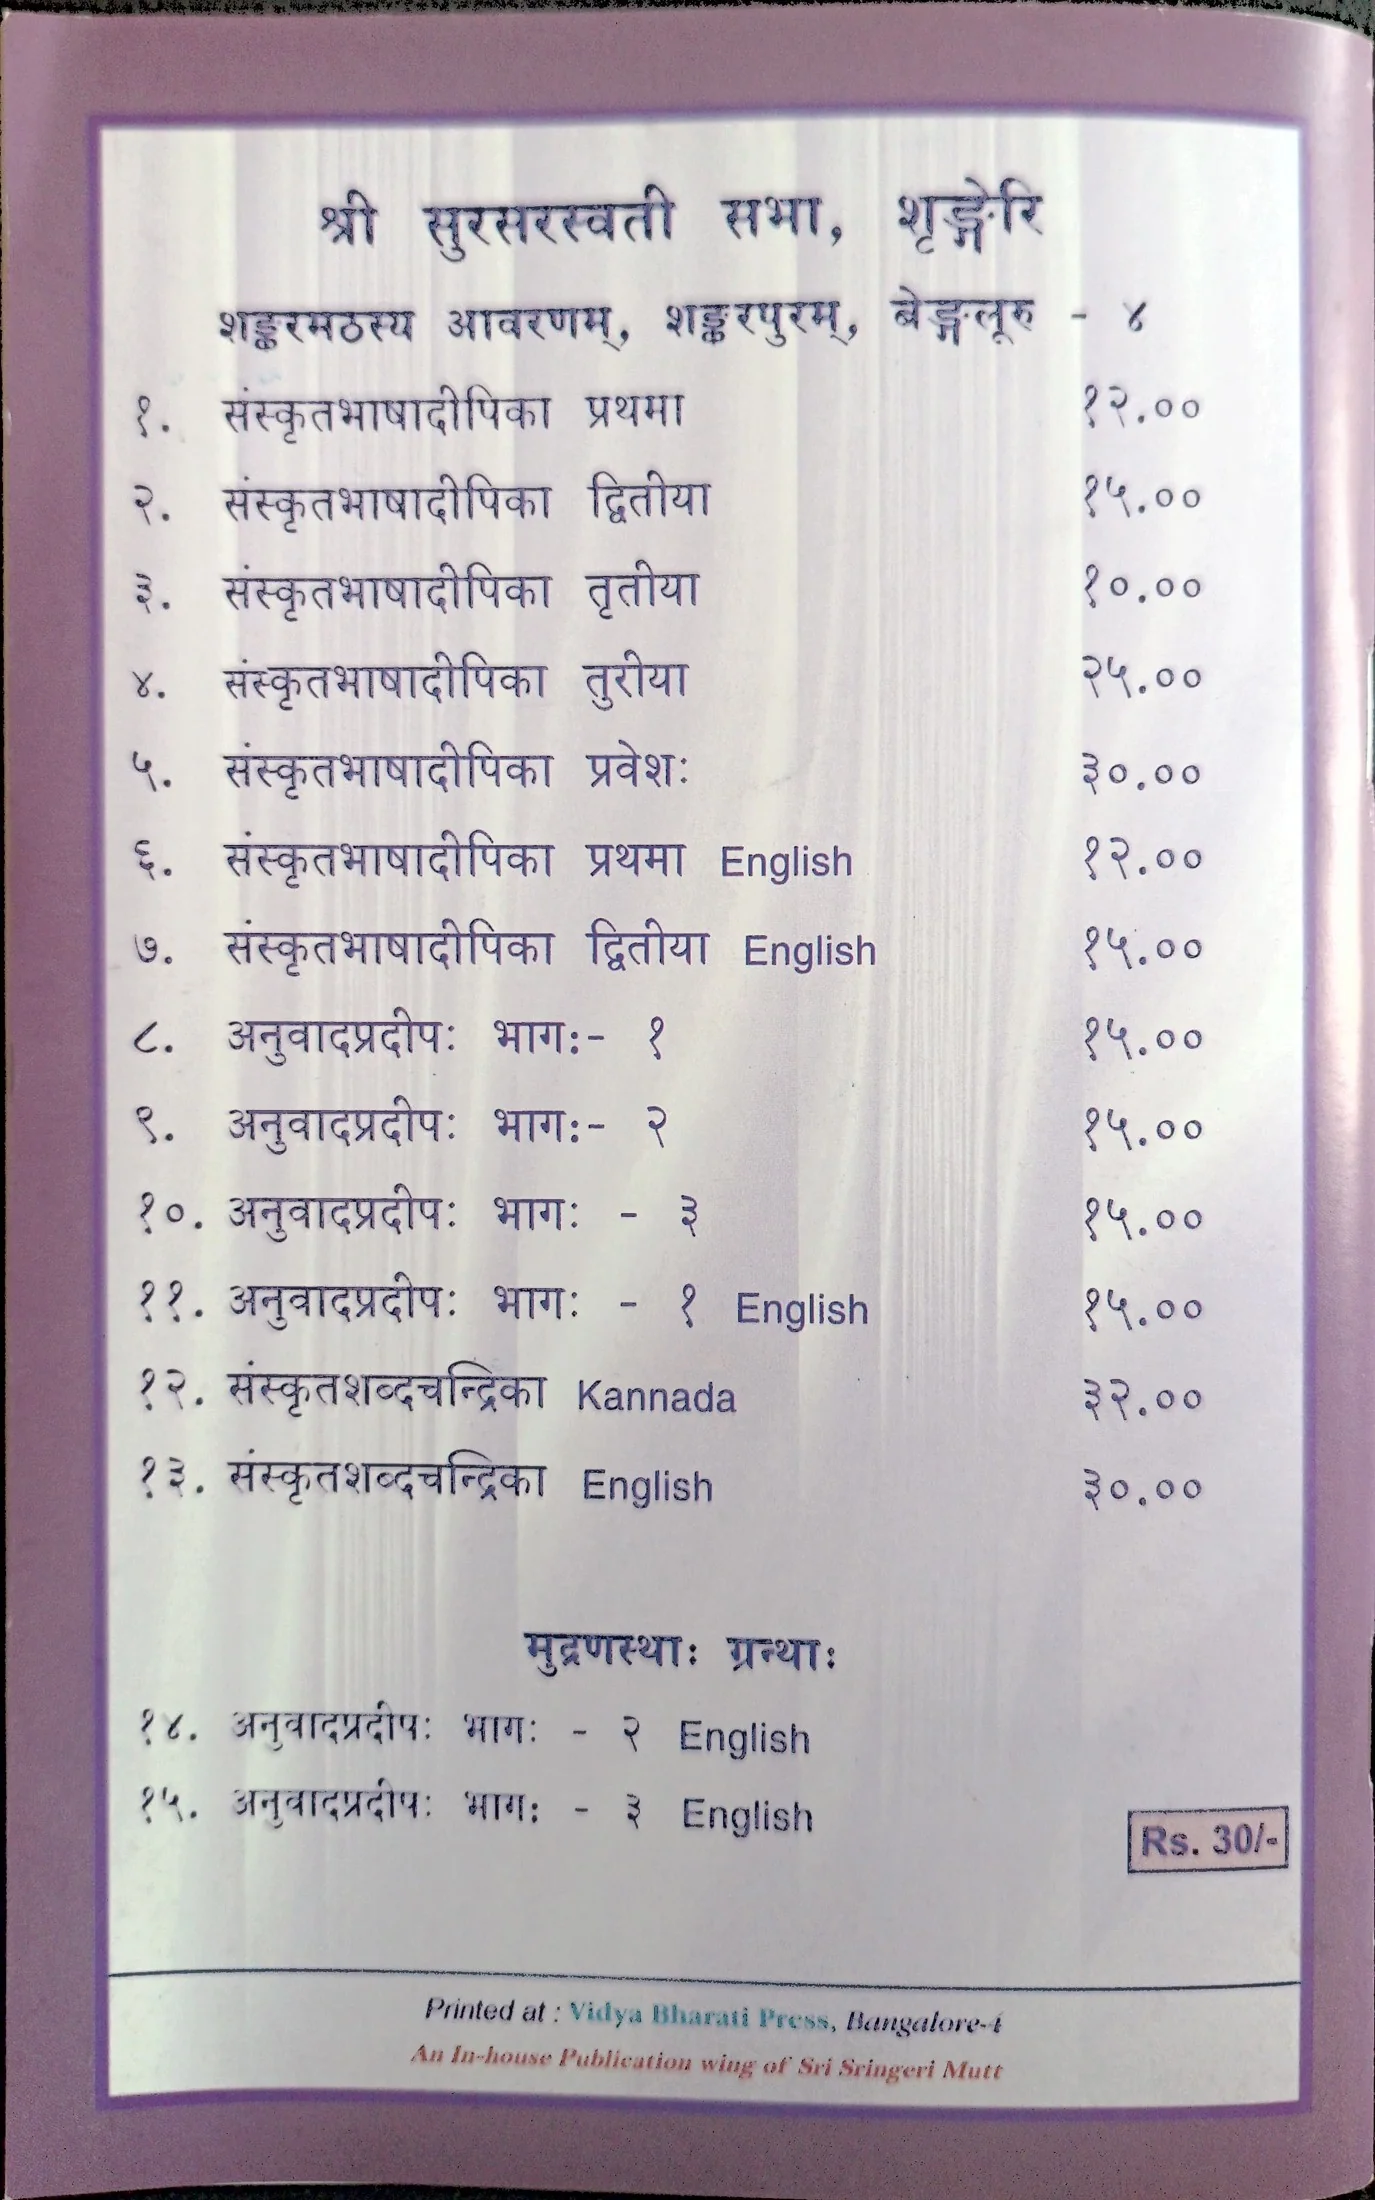 श्री सुरसरस्वती सभा, शृङ्गेरि
शङ्करमठस्य आवरणम्, शङ्करपुरम्, बेङ्गलूरु - ४
१. संस्कृतभाषादीपिका प्रथमा १२.००
२. संस्कृतभाषादीपिका द्वितीया १५.००
३. संस्कृतभाषादीपिका तृतीया १०.००
४. संस्कृतभाषादीपिका तुरीया २५.००
५. संस्कृतभाषादीपिका प्रवेशः ३०.००
६. संस्कृतभाषादीपिका प्रथमा English १२.००
७. संस्कृतभाषादीपिका द्वितीया English १५.००
८. अनुवादप्रदीपः भागः- १ १५.००
९. अनुवादप्रदीपः भागः- २ १५.००
१०. अनुवादप्रदीपः भागः - ३ १५.००
११. अनुवादप्रदीपः भागः - १ English १५.००
१२. संस्कृतशब्दचन्द्रिका Kannada ३२.००
१३. संस्कृतशब्दचन्द्रिका English ३०.००
मुद्रणस्थाः ग्रन्थाः
१४. अनुवादप्रदीपः भागः - २ English
१५. अनुवादप्रदीपः भागः - ३ English
Rs. 30/-
Printed at : Vidya Bharati Press, Bangalore-4
An In-house Publication wing of Sri Sringeri Mutt